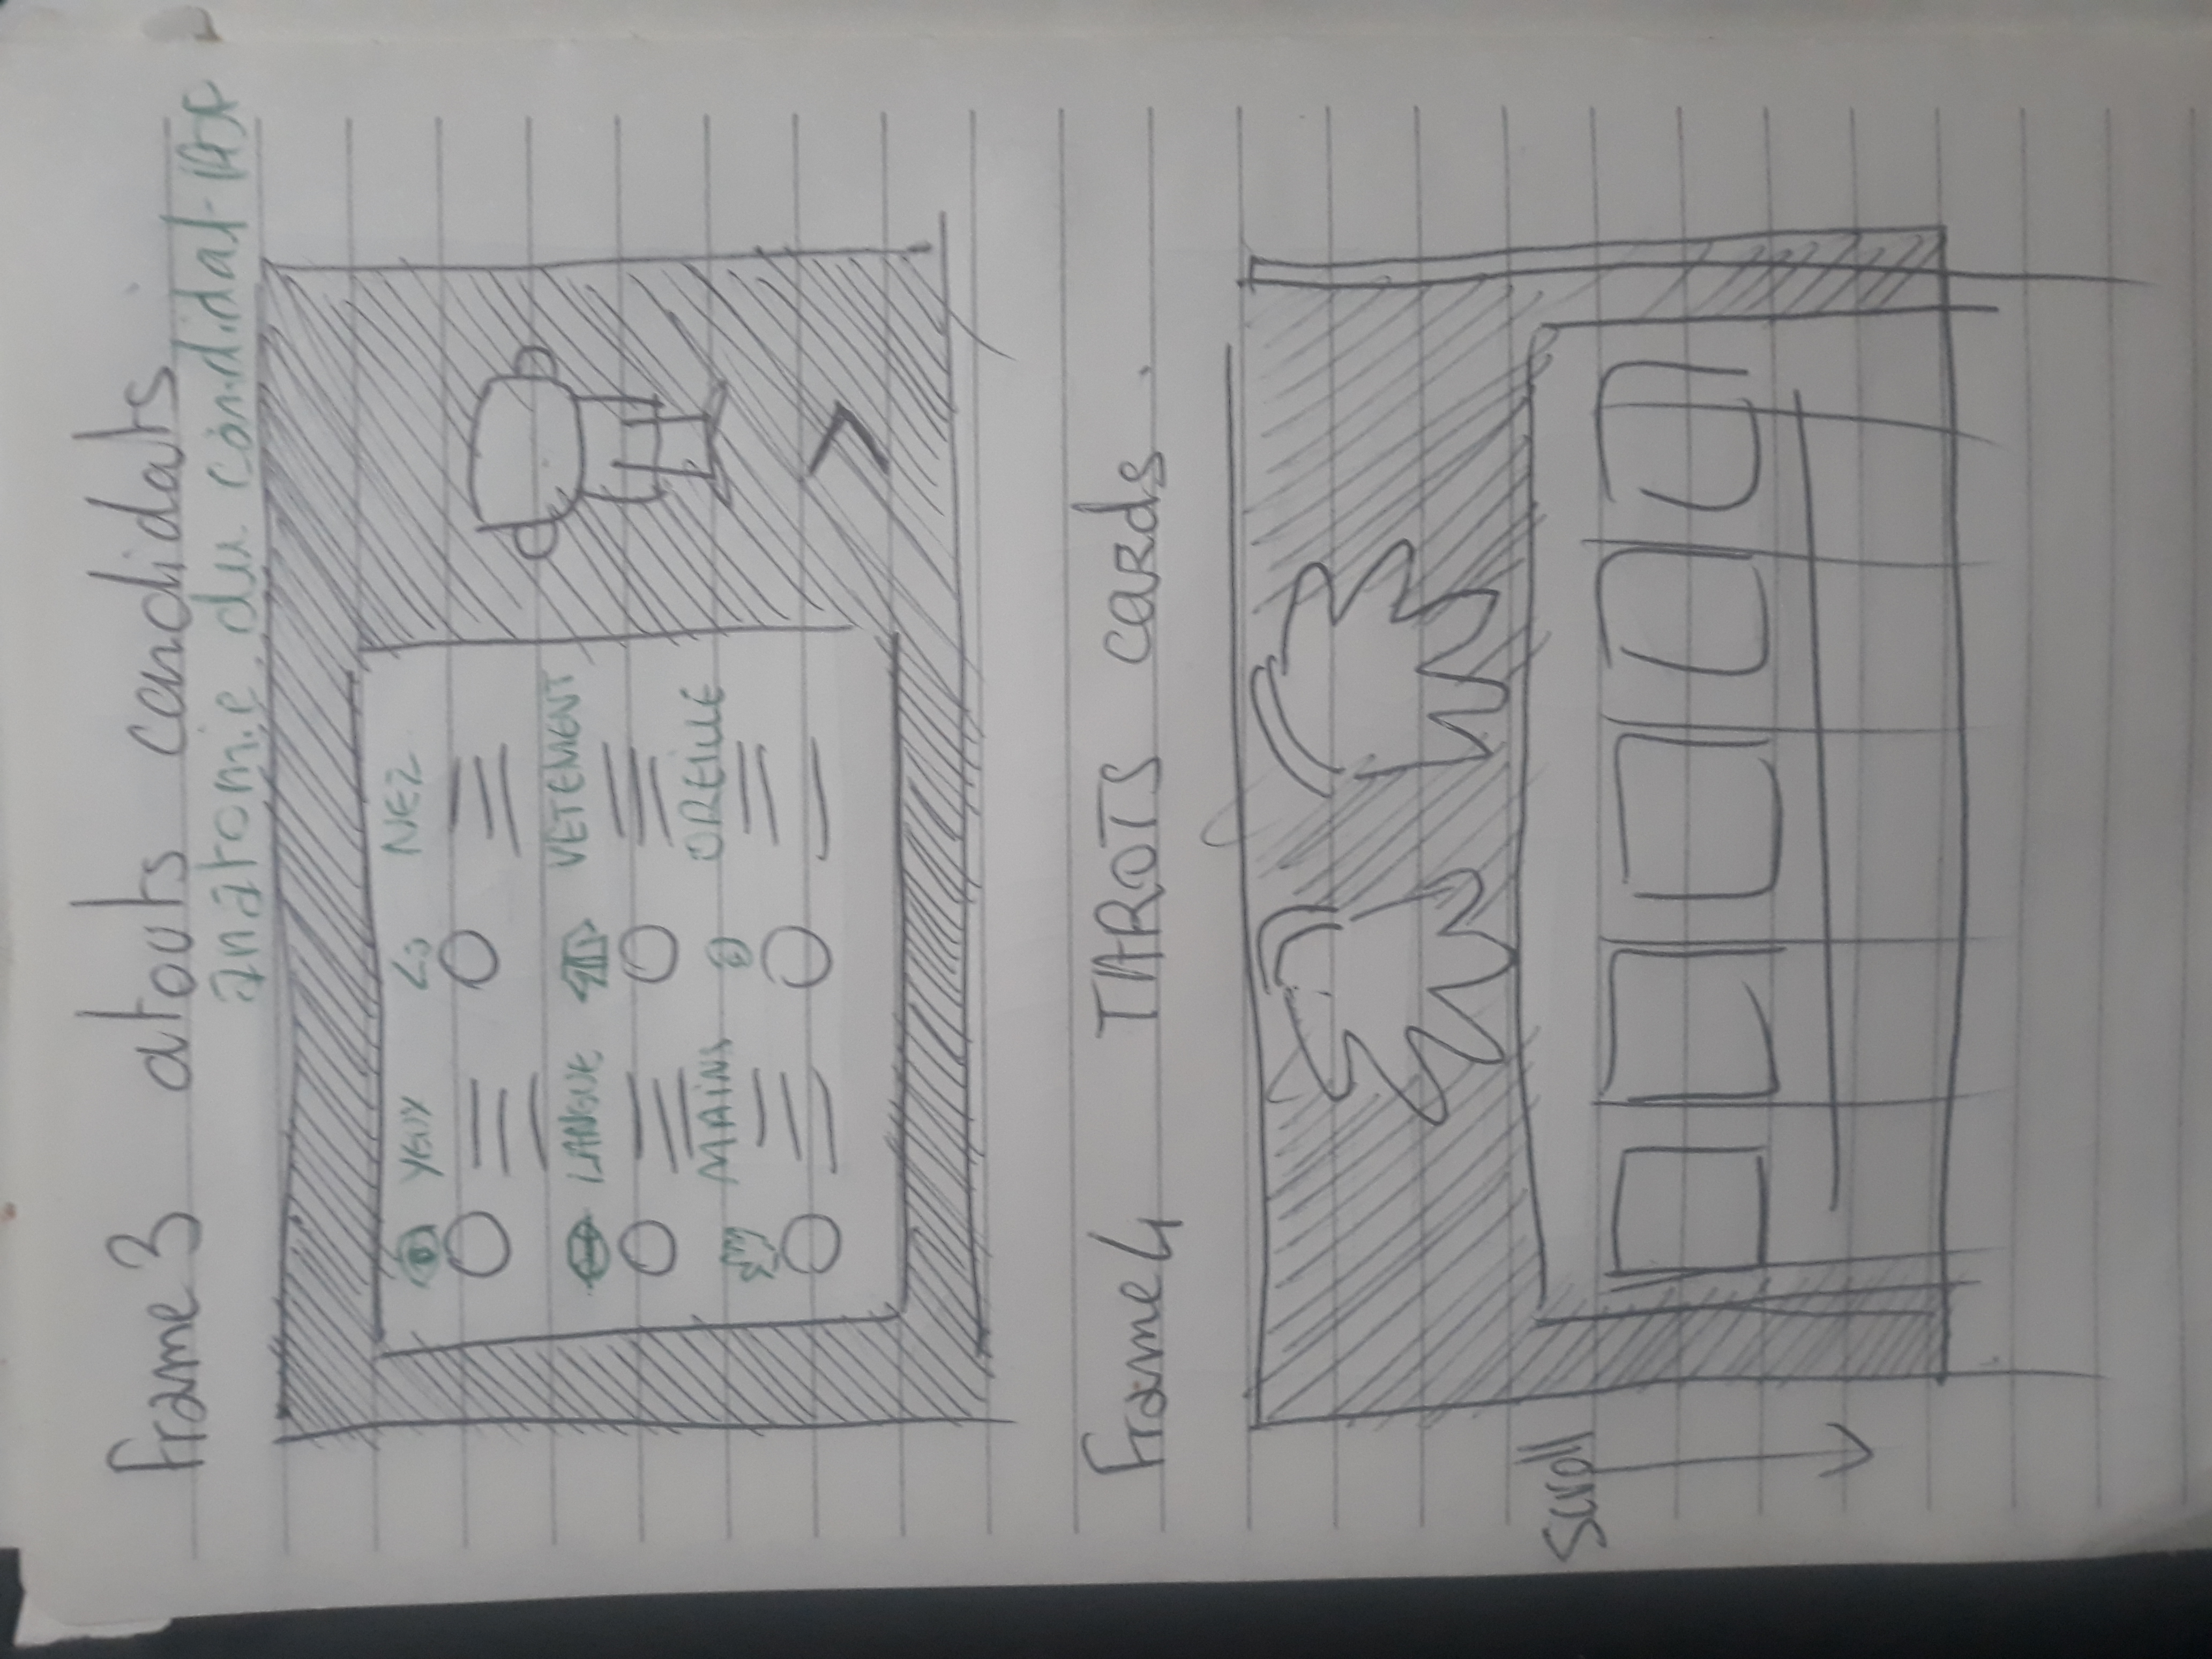 Frame 3 atouts candidats
anatomie du candidat
YEUX NEZ
LANGUE VETEMENT
MAINS OREILLE
Frame 4 TAROTS cards
scroll